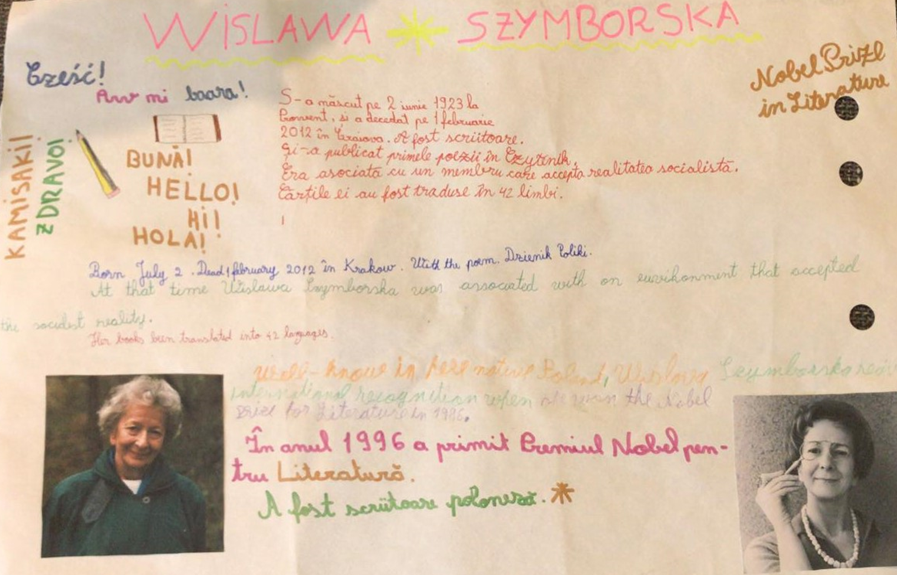 WISLAWA SZYMBORSKA
Cześć!
Aww mi baara!
Nobel Prize
in Literature
KAMISAKI!
ZDRAVO!
BUNĂ!
HELLO!
Hi!
HOLA!
S-a născut pe 2 iunie 1923 la
, și a decedat pe 1 februarie
2012 în . A fost scriitoare.
Și-a publicat primele poezii în
Era asociată cu un membru care accepta realitatea socialistă.
Cărțile ei au fost traduse în 42 limbi.
Born July 2. Dead 1 february 2012 în Krakow. With the poem. Dzienik
At that time Wislawa Szymborska was associated with on that accepted
the socilest reality.
Her books been translated into 42 languages.
in her native Poland, Wislawa Szymborska
international recognition when won the Nobel
for Literature in
În anul 1996 a primit Premiul Nobel pen-
tru Literatură.
A fost scriitoare poloneză.